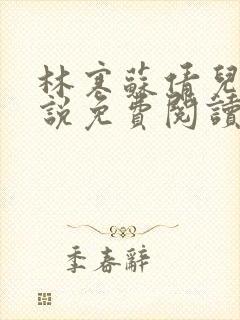 林寒蘇倩兒
說免費閱讀
季春辭